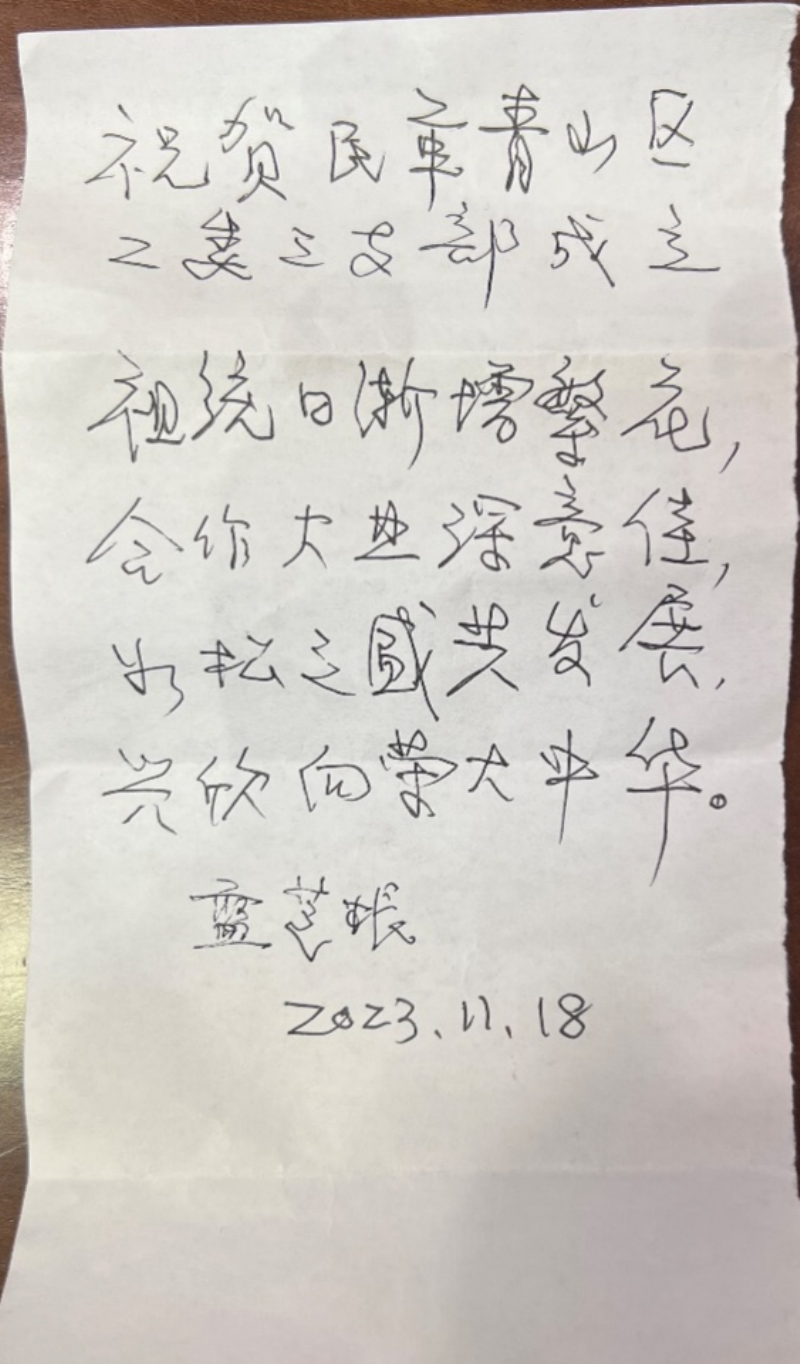 祝贺民革青山区
工委三支部成立
祖统日渐增繁花,
合作大业深意佳,
如松之盛共发展,
兴欣向荣大中华。
2023.11.18